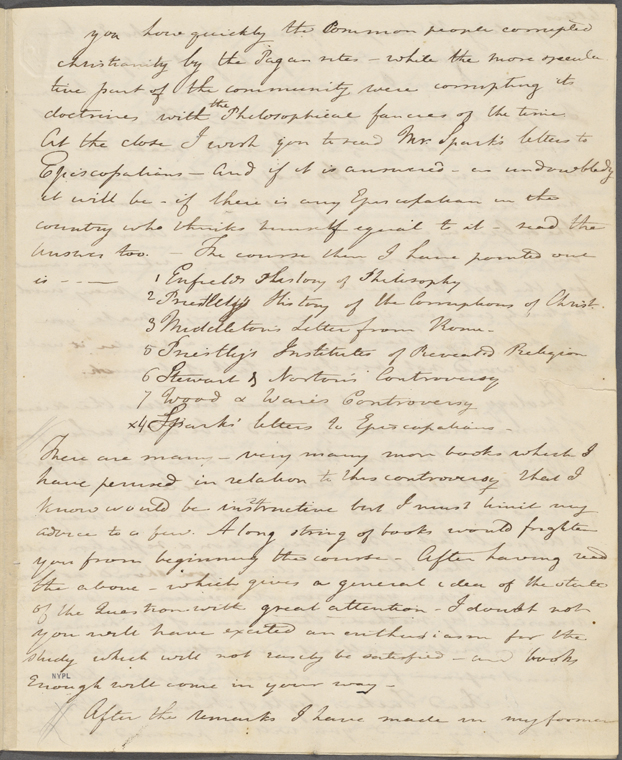 you how quickly the Common people corrupted
christianity by the Pagan rites - while the more specula
tive part of the community were corrupting its
doctrines with the Philosophical fancies of the time
At the close I wish you to read Mr. Spark's letters to
Episcopalians - And if it is answered - as undoubtedly
it will be - if there is any Episcopalian in the
country who thinks himself equal to it - read the
answer too. - The course then I have pointed out
is - - —
1 Enfield's History of Philosophy
2 Priestley's History of the Corruptions of Christ.
3 Middleton's Letter from Rome -
5 Priestly's Institutes of Revealed Religion
6 Stewart & Norton's Controversy
7 Wood & Ware's Controversy
x4 Spark's letters to Episcopalians -
There are many - very many more books which I
have perused in relation to this controversy that I
know would be instructive but I must limit my
advice to a few. A long string of books would frighten
you from beginning the course - After having read
the above - which gives a general idea of the state
of the Question with great attention - I doubt not
you will have excited an enthusiasm for the
study which will not easily be satisfied - and books
Enough will come in your way -
NYPL
After the remarks I have made in my former